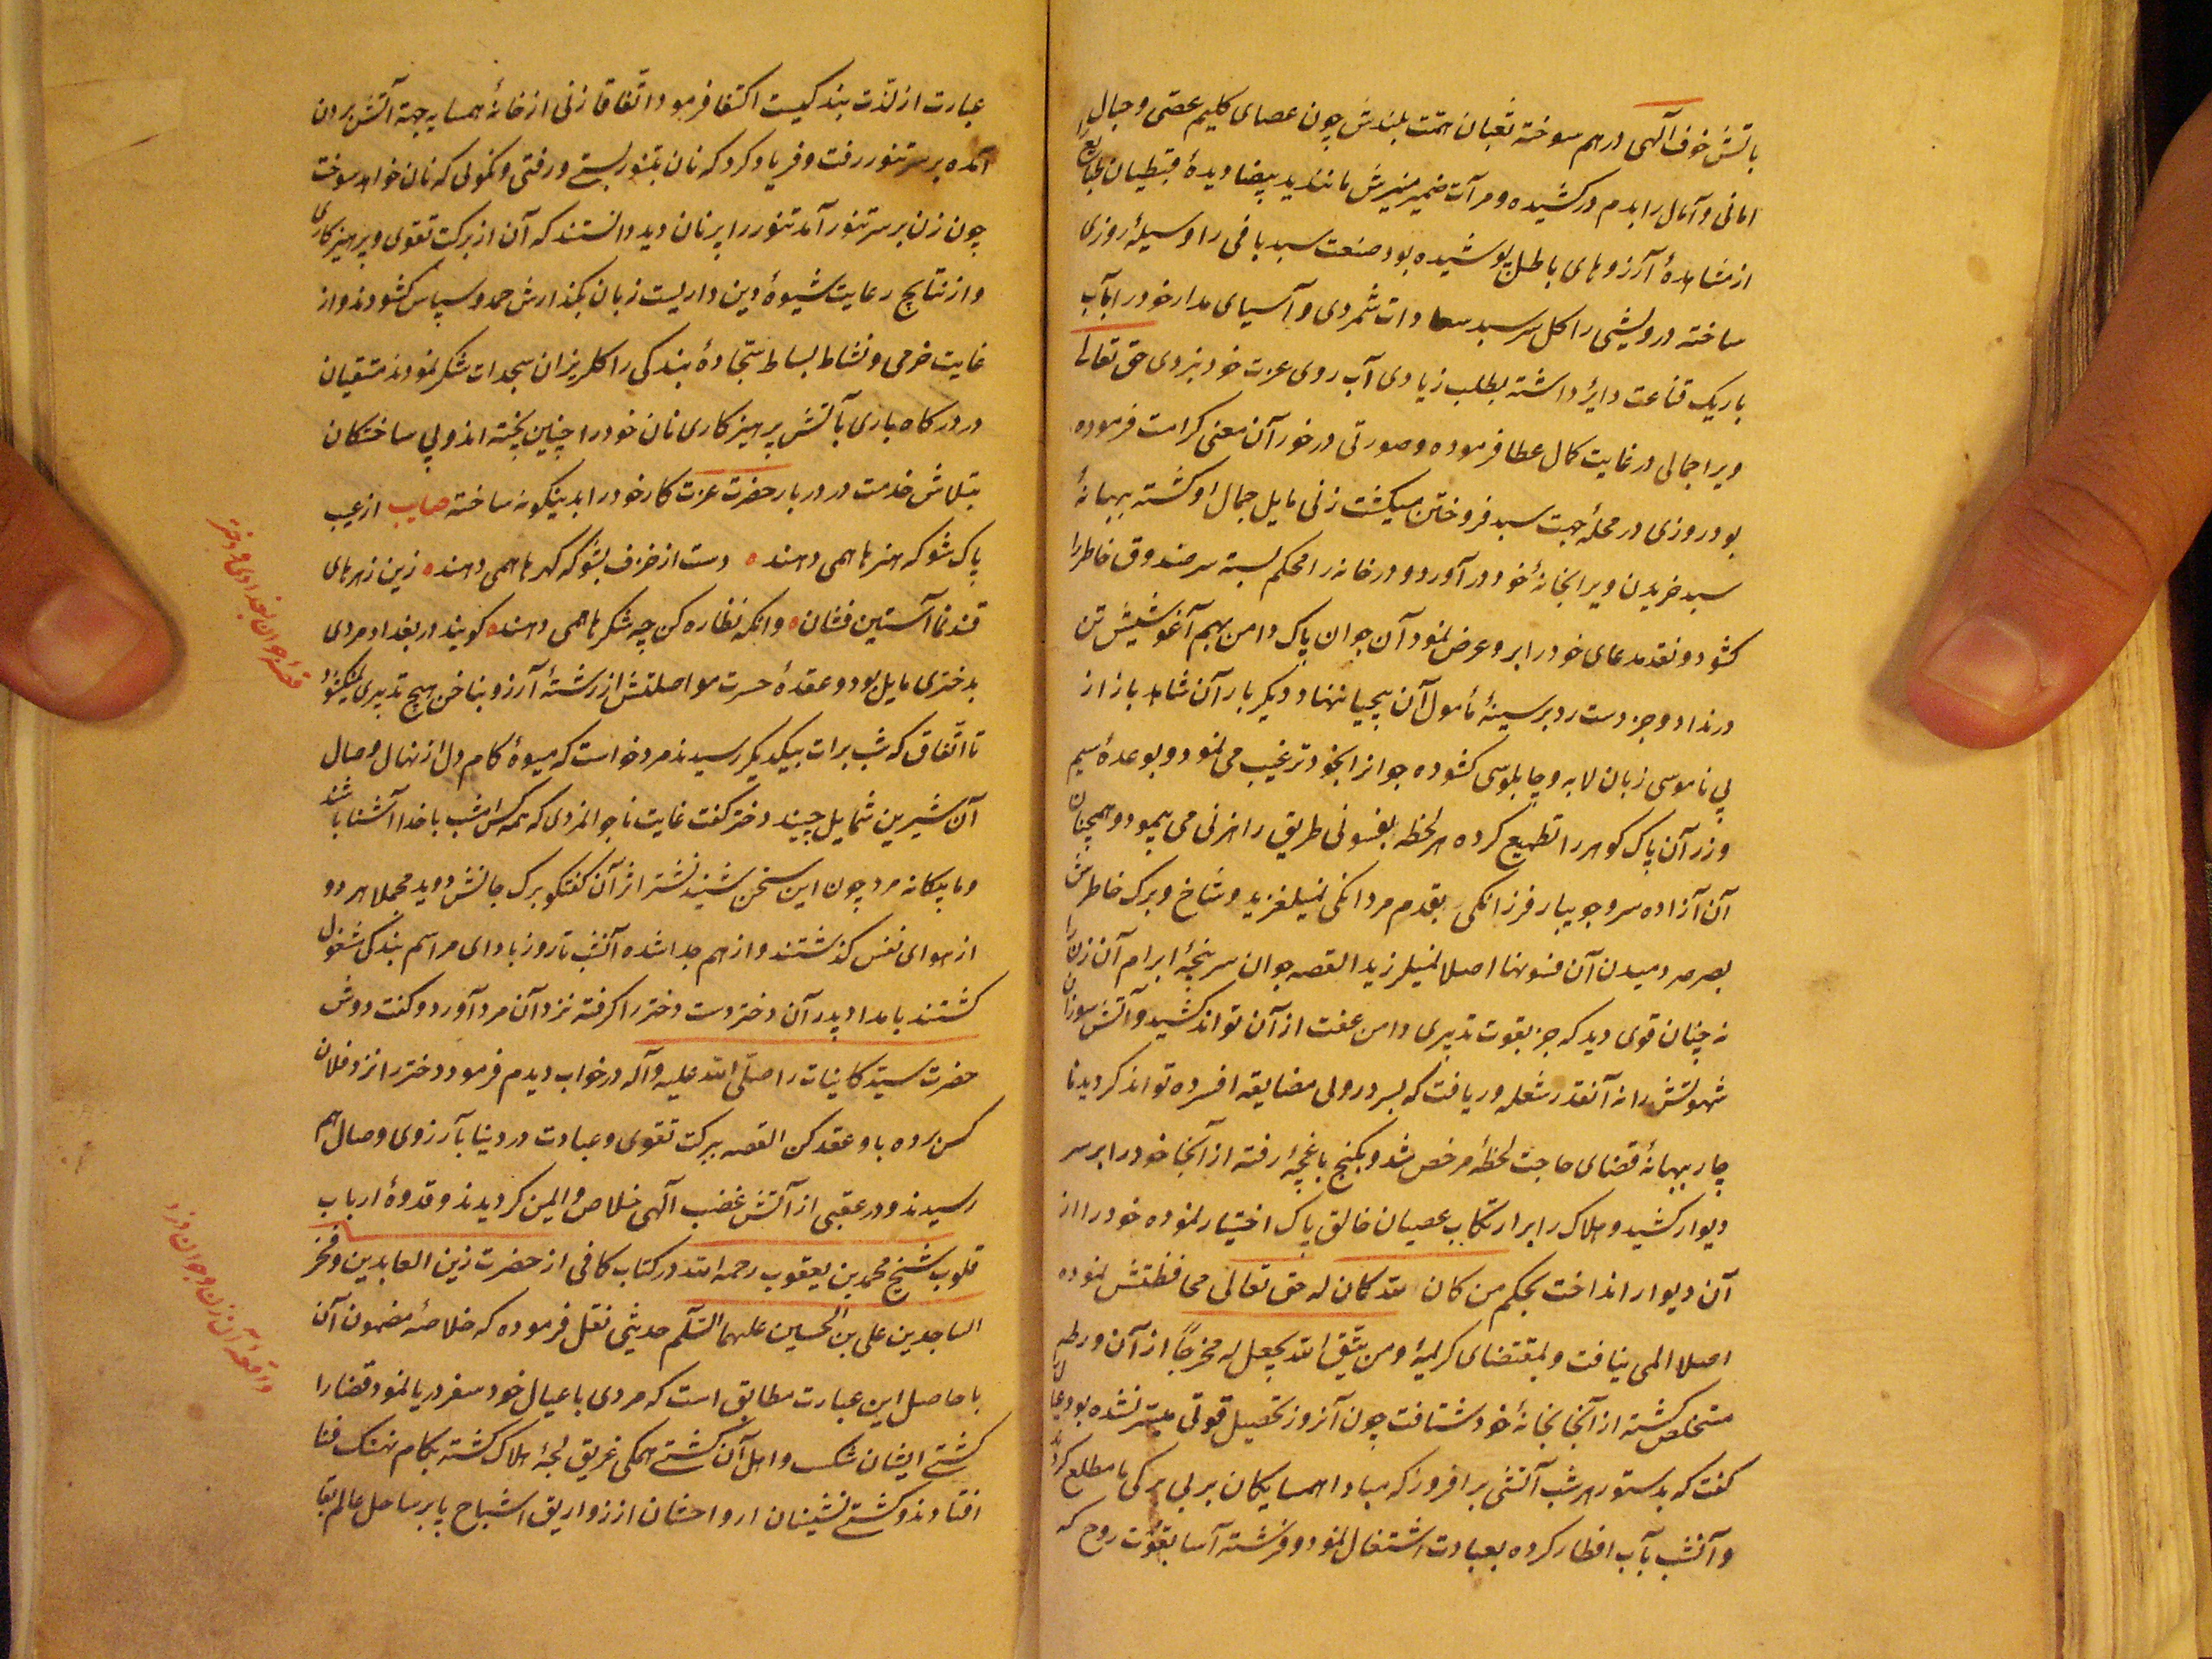 باتش خوف آلهی درهم سوخته ثعبان همت بلندش چون عصای کلیم عصی و حبال
امانی و آمال را بدم درکشیده و مرآت ضمیر منیرش مانند ید بیضا دیدهٔ قبطیان طبایع را
از مشاهدهٔ آرزوهای باطل پوشیده بود صنعت سبد بافی را وسیلهٔ روزی
ساخته درویشی را کل سر سبد سعادات شمردی و آسیای مدار خود را بآب
باریک قناعت دایر داشته بطلب زیادی آب روی عزت خود نبردی حق تعالی
ویرا جمالی در غایت کمال عطا فرموده و صورتی درخور آن معنی کرامت فرموده
بود روزی در محلهٔ جهت سبد فروختن میکشت زنی مایل جمال او کشته ببهانهٔ
سبد خریدن ویرا بخانهٔ خود درآورد و در خانه را محکم بسته سر صندوق خاطر را
کشود و نقد مدعای خود را برو عرض نمود آن جوان پاک دامن بهم آغوشیش تن
درنداد و جز دست رد بر سینهٔ مأمول آن بیحیا ننهاد و دیگر بار آن شاهد باز از
پی ناموسی زبان لابه و چاپلوسی کشوده جوانرا بخود ترغیب می نمود و بوعدهٔ سیم
و زر آن پاک کوهر را تطمیع کرده هر لحظه بفسونی طریق راهزنی می پیمود و همچنان
آن آزاده سرو جویبار فرزانکی بقدم مردانکی نمیلغزید و شاخ و برک خاطرش
بصرصر دمیدن آن فسونها اصلا نمیلرزید القصه جوان سرپنجهٔ ابرام آن زن را
نه چنان قوی دید که جز بقوت تدبیری دامن عفت از آن تواند کشید و آتش سوزان
شهوتش را نه آنقدر شعله ور یافت که بسردرولی مضایقه افسرده تواند کردید نا
چار ببهانهٔ قضای حاجت لحظهٔ مرخص شد و بکنج باغچهٔ رفته از آنجا خود را بر سر
دیوار کشید و هلاک را بر ارتکاب عصیان خالق پاک اختیار نموده خود را از
آن دیوار انداخت بحکم من کان لله کان له حق تعالی محافظتش نموده
اصلا المی نیافت و بمقتضای کریمهٔ و من یتق الله یجعل له مخرجاً از آن ورطه
مستخلص کشته از آنجا بخانهٔ خود شتافت چون آنروز تحصیل قوتی میسر نشده بود بعیال
کفت که بدستور هر شب آتشی برافروز که مبادا همسایکان بر بی برکی ما مطلع کردند
و آنشب بآب افطار کرده بعبادت اشتغال نمود و فرشته آسا بقوت روح که
عبارت از لذت بندکیست اکتفا فرمود اتّفاقا زنی از خانهٔ همسایه جهة آتش بردن
آمده بر سر تنور رفت و فریاد کرد که نان بتنور بستی و رفتی و نمولی که نان خواهد سوخت
چون زن بر سر تنور آمد تنور را پر نان دید دانستند که آن از برکت تقوی و پرهیزکاری
و از نتایج رعایت شیوهٔ دین داریست زبان بکذارش حمد و سپاس کشودند و از
غایت خرمی و نشاط بساط سجّادهٔ بندکی را کلریزان سجدات شکر نمودند متقیان
در درکاه باری بآتش پرهیزکاری نان خود را چنین پخته اند و پی ساختکان
بتلاش خدمت در دربار حضرت عزت کار خود را بدینکونه ساخته صایب از عیب
پاک شو که هنرها همی دهند ه دست از خزف بشو که کهرها همی دهند ه زین زهرهای
قندنما آستین فشان ه وانکه نظاره کن چه شکرها همی دهند ه کویند در بغداد مردی
بدختری مایل بود و عقدهٔ حسرت مواصلتش از رشتهٔ آرزو بناخن هیچ تدبیری نمیکشود
تا اتّفاق که شب برات بیکدیکر رسیدند مرد خواست که میوهٔ کام دل از نهال وصال
آن شیرین شمایل چیند دختر کفت غایت ناجوانمردی که همه کس امشب با خدا آشنا باشند
و ما بیکانه مرد چون این سخن شنید نشتر از آن کفتکو برک جانش دوید مجملا هر دو
از هوای نفس کذشتند و از هم جدا شده آنشب تا روز بادای مراسم بندکی مشغول
کشتند بامداد پدر آن دختر دست دختر را کرفته نزد آن مرد آورد و کفت دوش
حضرت سیّد کاینات را صلّی الله علیه و آله در خواب دیدم فرمود دختر را نزد فلان
کس برده باو عقد کن القصه ببرکت تقوی و عبادت در دنیا بآرزوی وصال هم
رسیدند و در عقبی از آتش غضب آلهی خلاص و ایمن کردیدند و قدوهٔ ارباب
قلوب شیخ محمد بن یعقوب رحمه الله در کتاب کافی از حضرت زین العابدین و فخر
الساجدین علی بن الحسین علیهما السّلم حدیثی نقل فرموده که خلاصهٔ مضمون آن
با حاصل این عبارت مطابق است که مردی با عیال خود سفر دریا نمود قضا را
کشتی ایشان شکست و اهل آن کشتی همکی غریق لجهٔ هلاک کشته بکام نهنک فنا
افتادند و کشتی نشینان ارواحشان از زواریق اشباح پا بر ساحل عالم بقا
قصّهٔ جوان بغدادی و دختر
واقعهٔ آن زن و جوان دزد